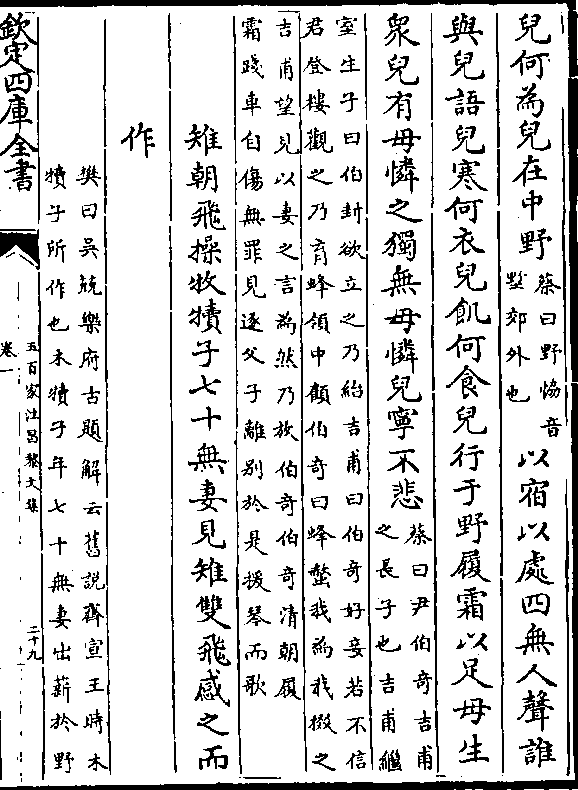 兒何為兒在中野蔡曰野恊音墅郊外也以宿以處四無人聲誰
與兒語兒寒何衣兒飢何食兒行于野履霜以足母生
衆兒有母憐之獨無母憐兒寧不悲蔡曰尹伯奇吉甫之長子也吉甫繼
室生子曰伯封欲立之乃紿吉甫曰伯奇好妾若不信
君登樓觀之乃育蜂領中顧伯奇曰蜂螫我為我掇之
吉甫望見以妻之言為然乃放伯奇伯奇清朝履
霜踐車自傷無罪見逐父子離別於是援琴而歌
雉朝飛操牧犢子七十無妻見雉雙飛感之而
作
樊曰吳兢樂府古題解云舊說齊宣王時木
犢子所作也木犢子年七十無妻出薪於野
欽定四庫全書
五百家注昌黎文集
卷一
二十九